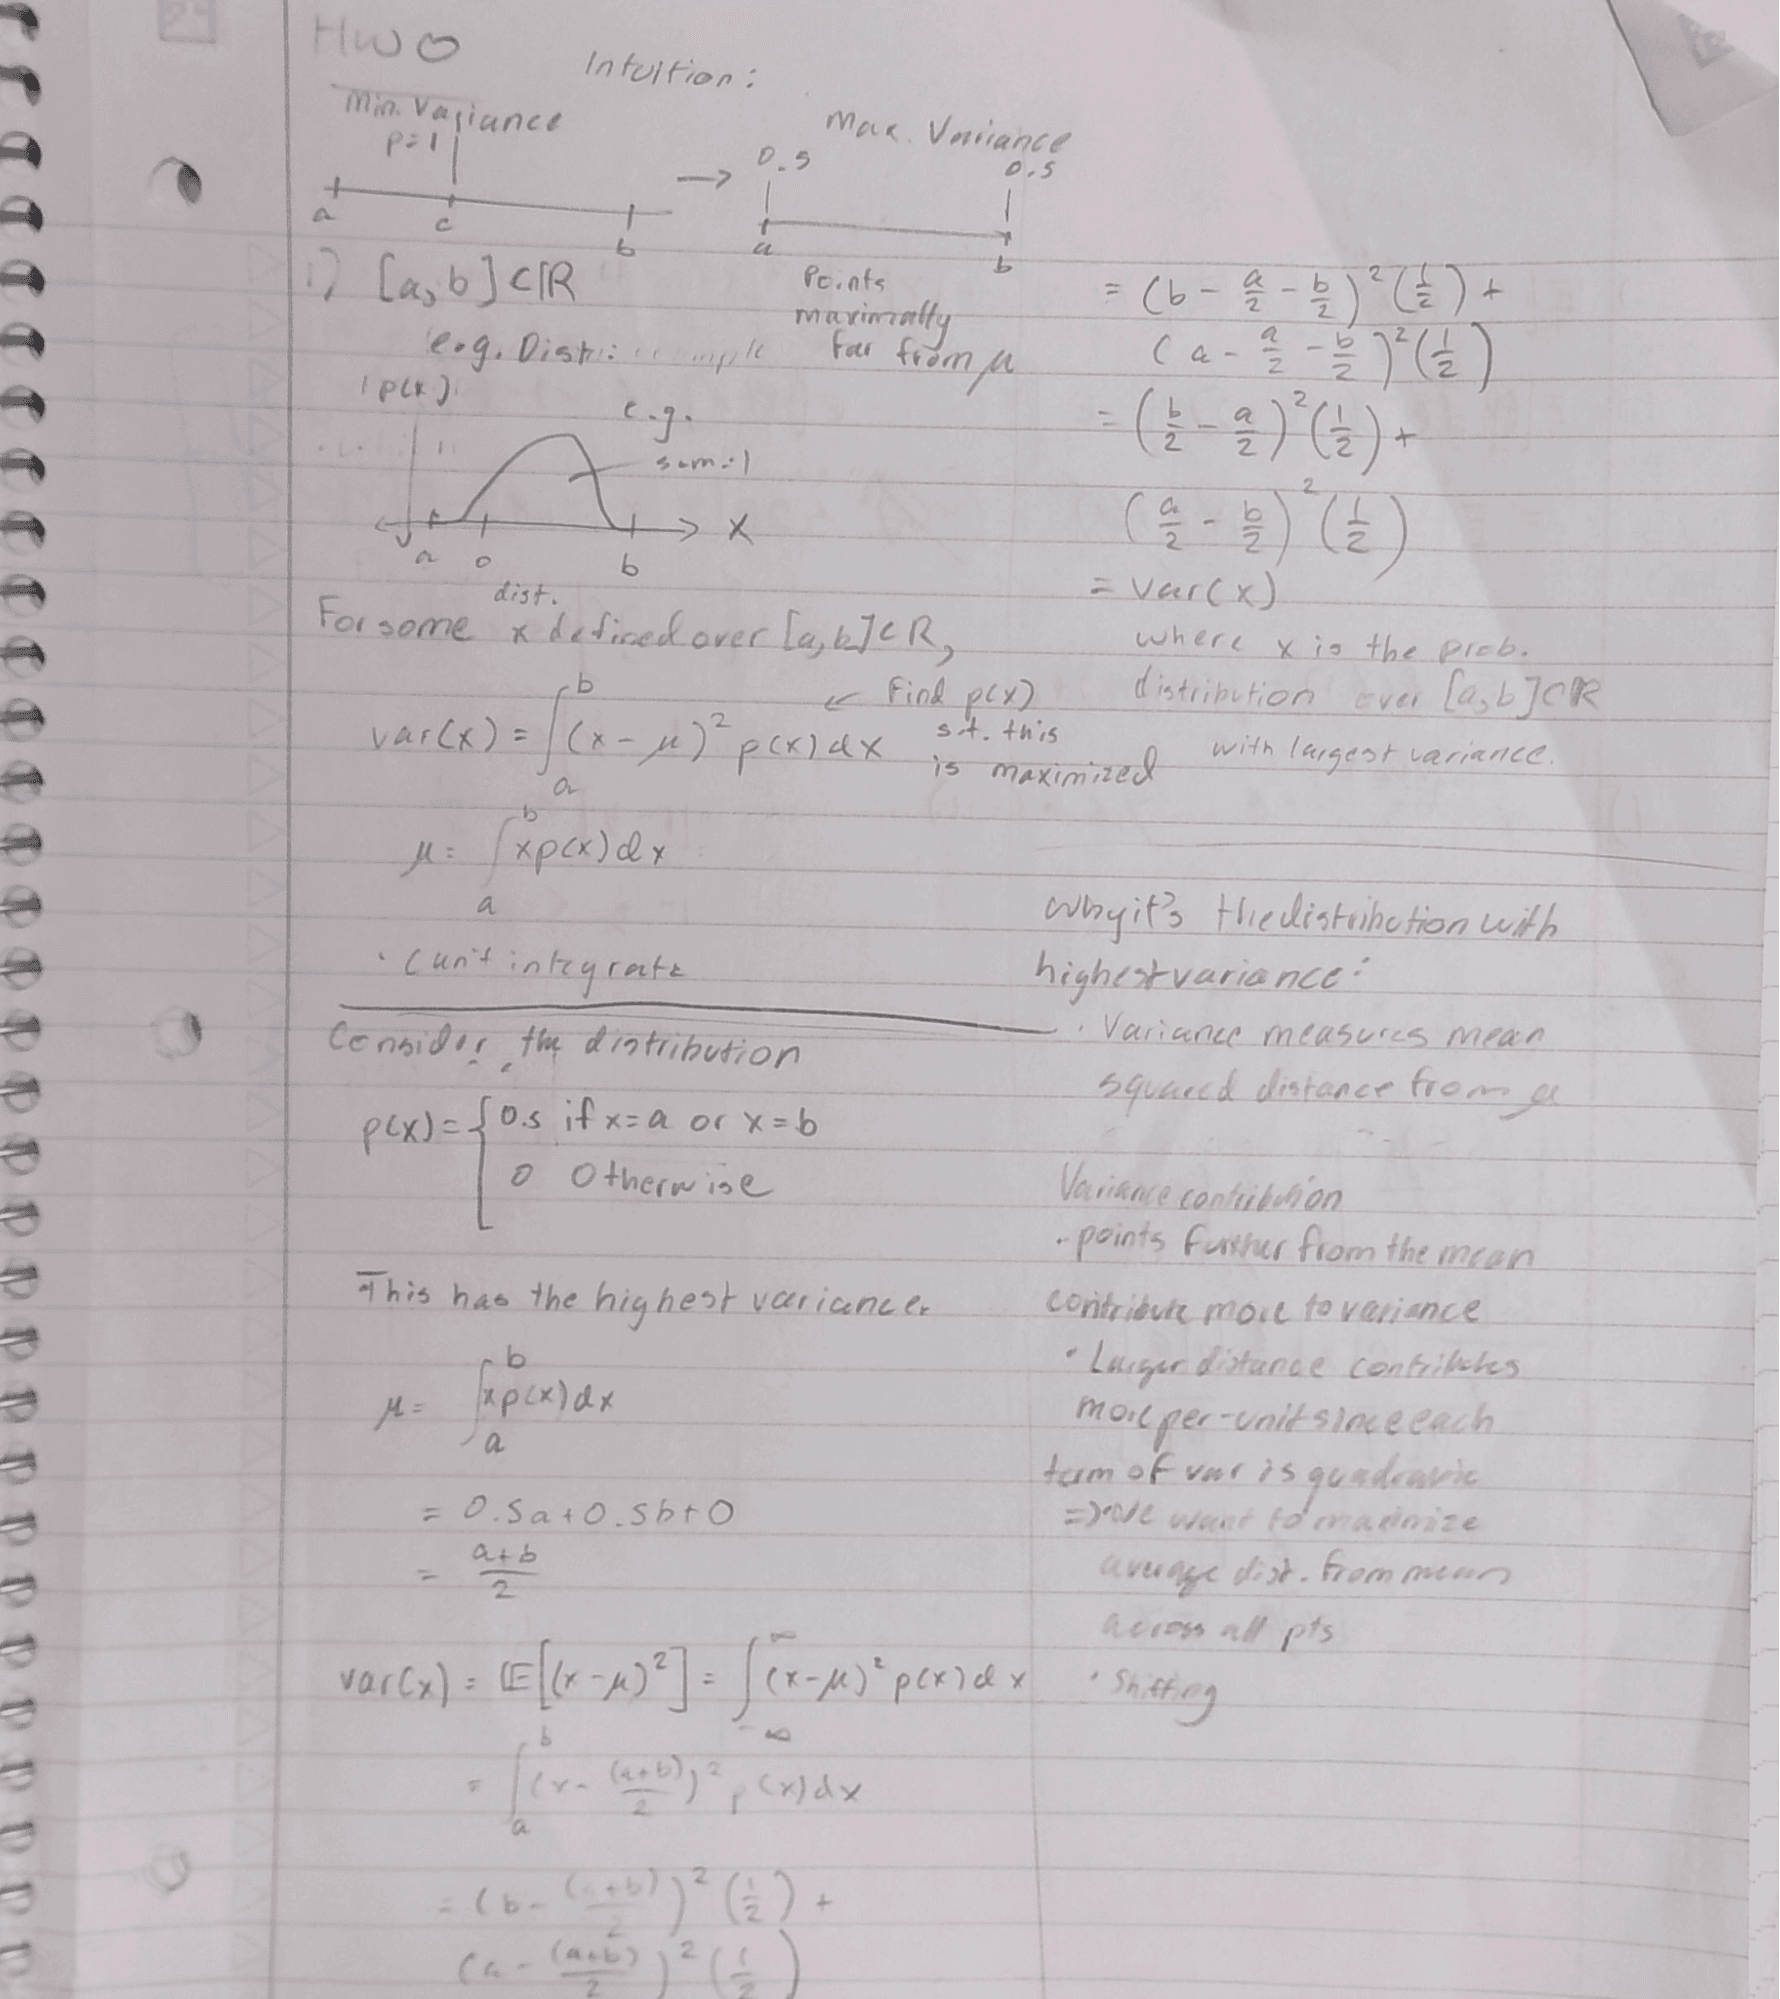 HW 0
Intuition:
Min. Variance
p=1
a c b
→
Max. Variance
0.5 0.5
a b
Points
maximally
far from μ
1) [a,b] ⊂ ℝ
e.g. Distri
p(x)
e.g.
sum=1
a 0 b x
dist.
For some x defined over [a,b] ⊂ R,
var(x) = ∫_a^b (x-μ)² p(x) dx
← Find p(x)
s.t. this
is maximized
μ = ∫_a^b xp(x) dx
· can't integrate
Consider the distribution
p(x) = { 0.5 if x=a or x=b
0 Otherwise
This has the highest variance.
μ = ∫_a^b xp(x) dx
= 0.5a+0.5b+0
= (a+b)/2
var(x) = 𝔼[(x-μ)²] = ∫_{-∞}^{∞} (x-μ)² p(x) dx
= ∫_a^b (x - (a+b)/2)² p(x) dx
= (b - (a+b)/2)² (1/2) +
(a - (a+b)/2)² (1/2)
= (b - a/2 - b/2)² (1/2) +
(a - a/2 - b/2)² (1/2)
= (b/2 - a/2)² (1/2) +
(a/2 - b/2)² (1/2)
= var(x)
where x is the prob.
distribution over [a,b] ⊂ ℝ
with largest variance.
Why it's the distribution with
highest variance:
· Variance measures mean
squared distance from μ
Variance contribution
· points further from the mean
contribute more to variance
· Larger distance contributes
more per-unit since each
term of var is quadratic
=> we want to maximize
average dist. from mean
across all pts
· Shifting